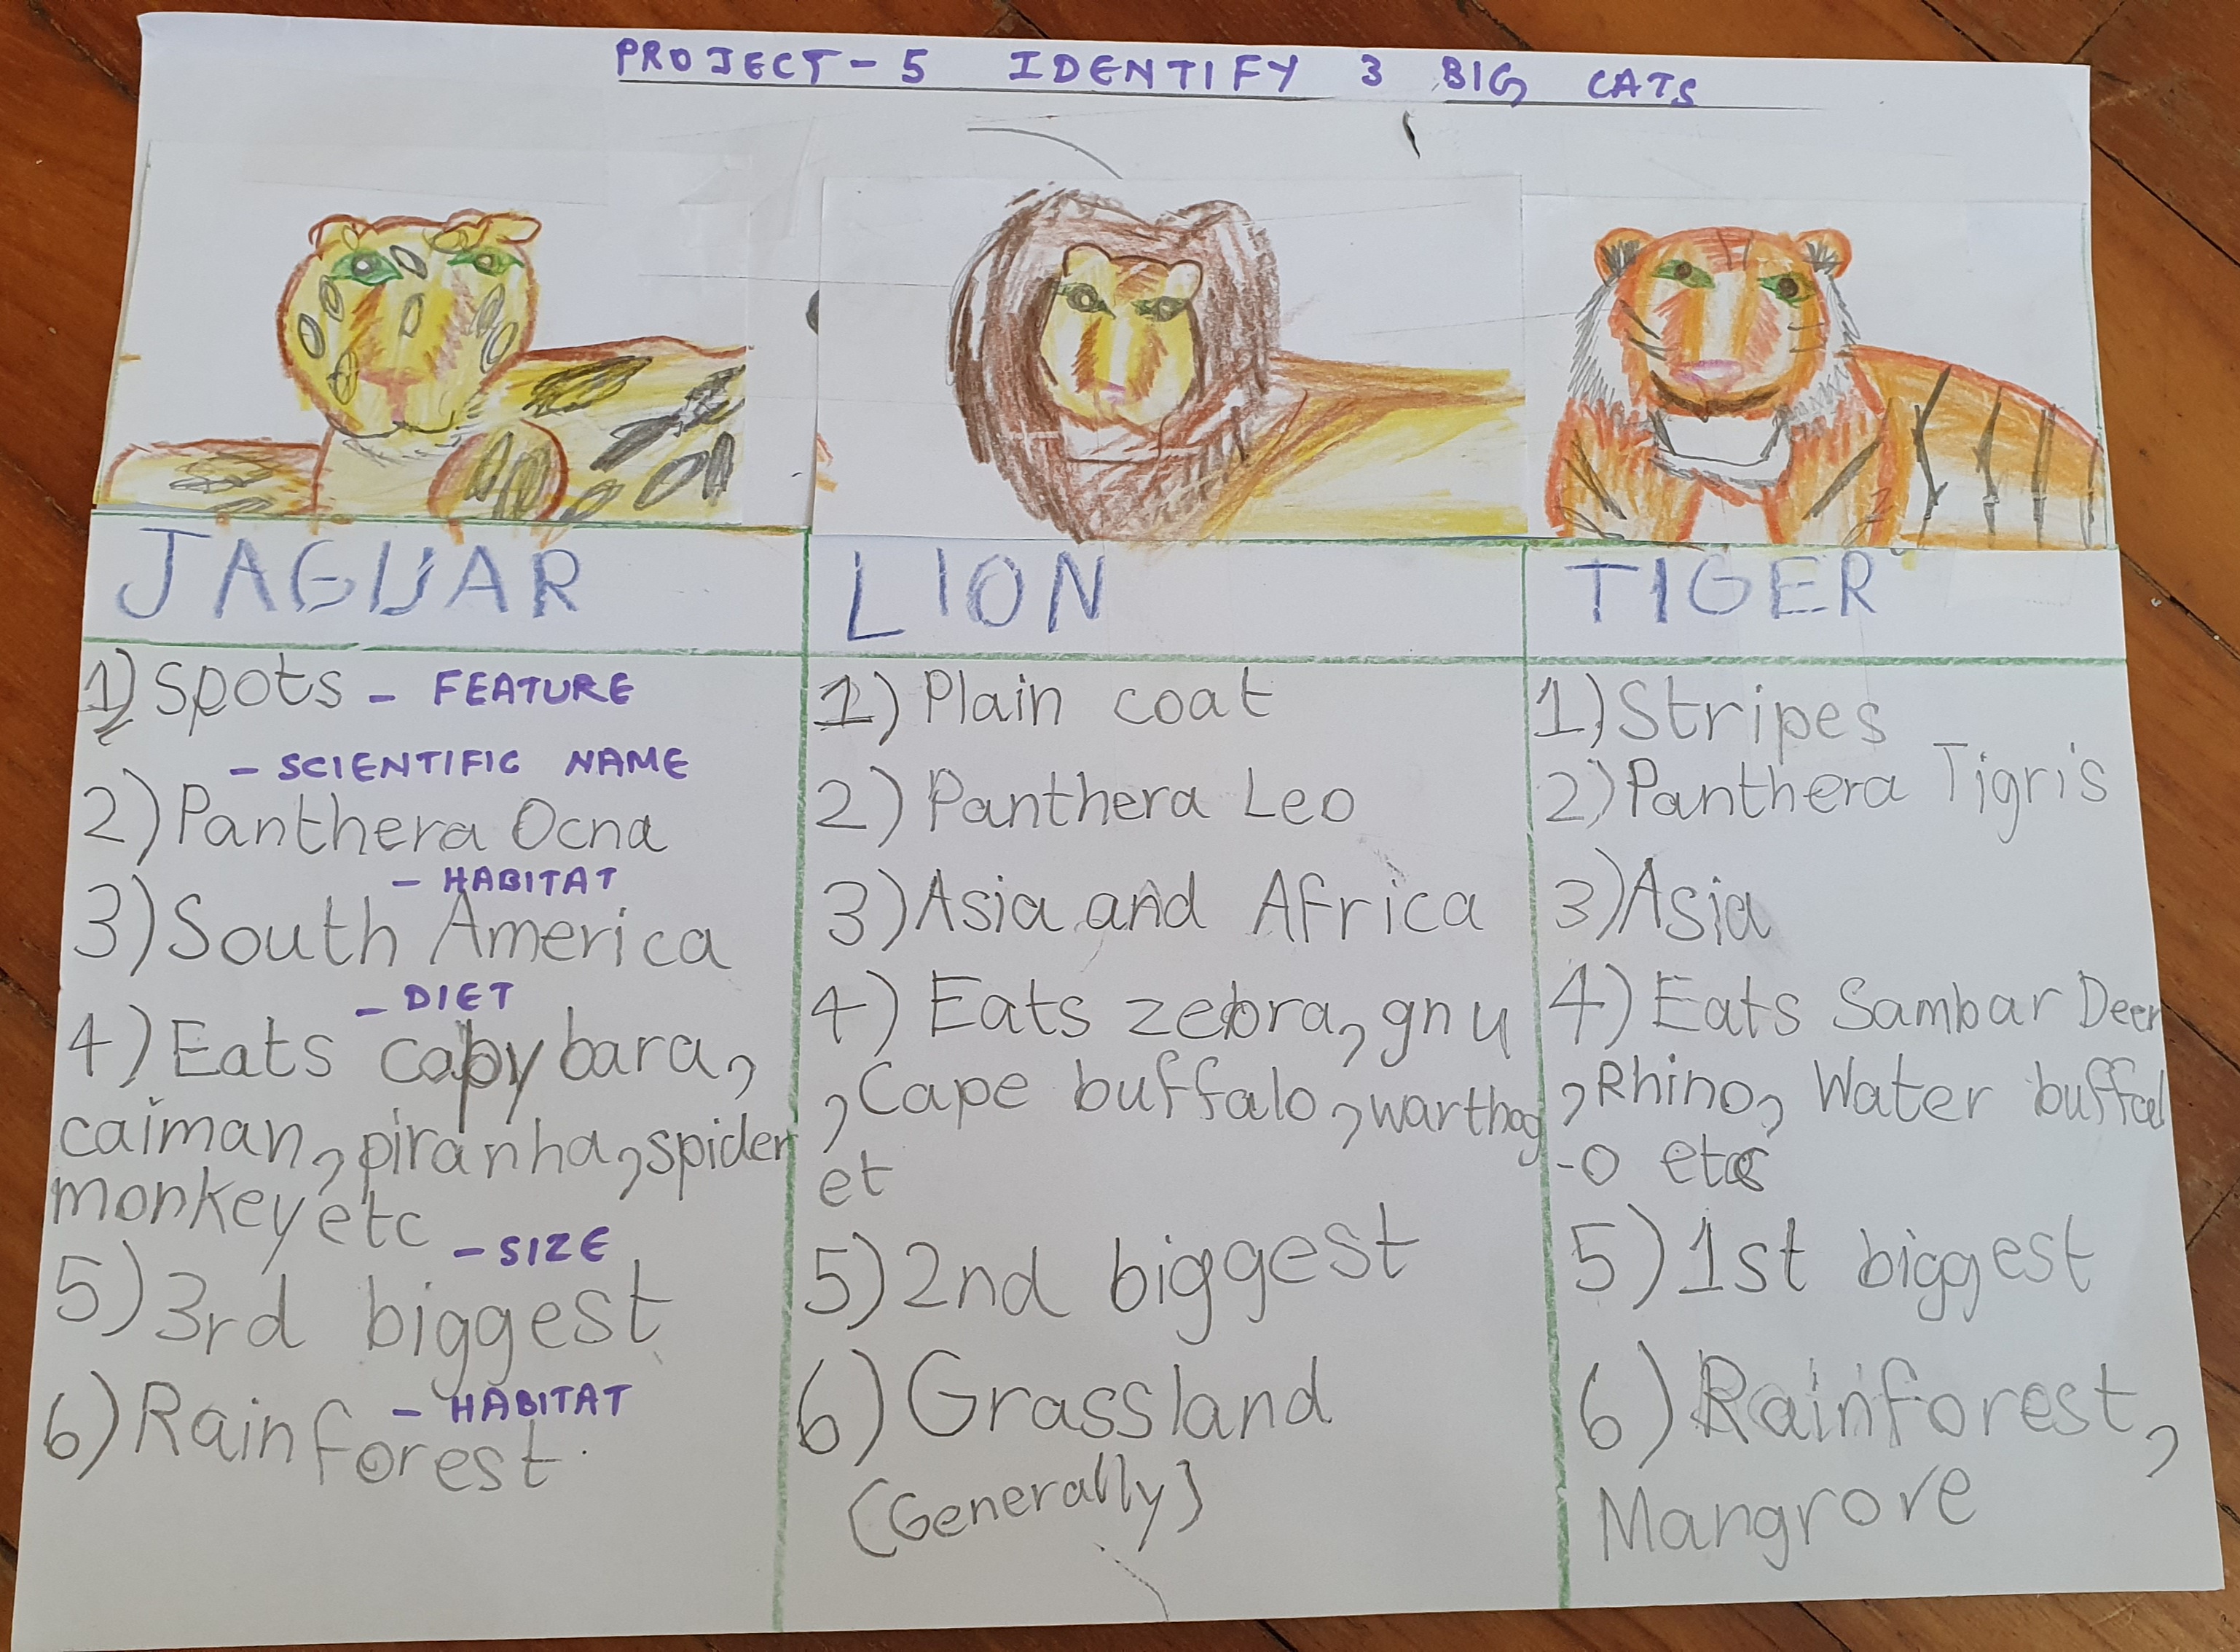 PROJECT-5 IDENTIFY 3 BIG CATS
JAGUAR
1) Spots - FEATURE
- SCIENTIFIC NAME
2) Panthera Ocna
- HABITAT
3) South America
- DIET
4) Eats capybara,
caiman, piranha, spider
monkey etc
- SIZE
5) 3rd biggest
- HABITAT
6) Rainforest.
LION
1) Plain coat
2) Panthera Leo
3) Asia and Africa
4) Eats zebra, gnu
, Cape buffalo, warthog
et
5) 2nd biggest
6) Grassland
(Generally)
TIGER
1) Stripes
2) Panthera Tigris
3) Asia
4) Eats Sambar Deer
, Rhino, Water buffal
-o etc
5) 1st biggest
6) Rainforest,
Mangrore